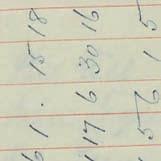 1 . 15 18
17 6 30 16
5 6 1 5